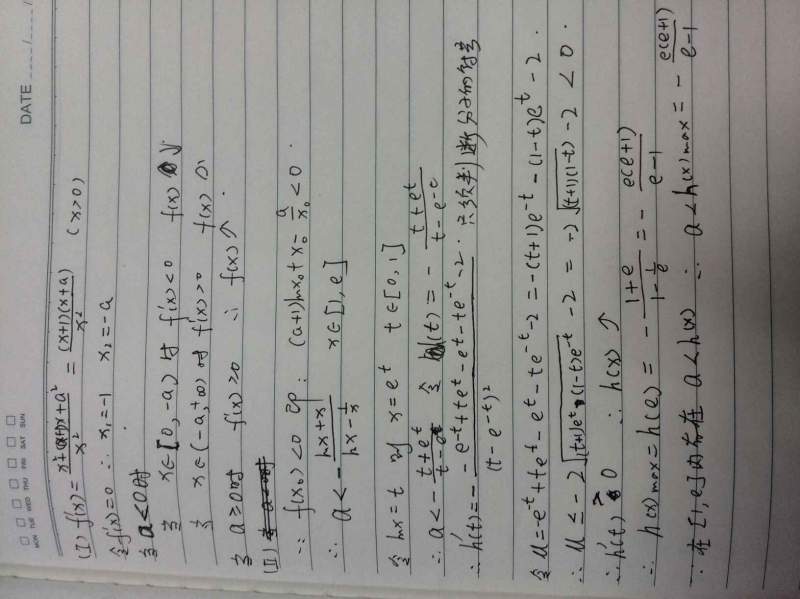 DATE ____/____/
MON TUE WED THU FRI SAT SUN
(I) f'(x) = (x²+(a+1)x+a)/x² = (x+1)(x+a)/x² (x>0)
令f'(x)=0 ∴ x₁=-1 x₂=-a
当 a<0时
当 x∈[0,-a)时 f'(x)<0 f(x)↓
当 x∈(-a,+∞)时 f'(x)>0 f(x)
当 a≥0时 f'(x)>0 ∴ f(x)↗.
(II)
∵ f(x₀)<0 即: (a+1)lnx₀+x₀-a/x₀<0.
∴ a<-(lnx+x)/(lnx-1/x) x∈[1,e]
令 lnx=t 则 x=e^t t∈[0,1]
∴ a<-(t+e^t)/(t-e^-t) 令 h(t)=-(t+e^t)/(t-e^-t)
∴ h'(t)=-(-e^-t+te^t-e^t-te^-t-2)/(t-e^-t)². 只须判断分子的符号
令 u=e^-t+te^t-e^t-te^-t-2=-(t+1)e^-t-(1-t)e^t-2.
∴ u<-2√((t+1)e^t·(1-t)e^-t)-2=-2√((t+1)(1-t))-2<0.
∴ h'(t)>0 ∴ h(x)↗
∴ h(x)max=h(e)=-(1+e)/(1-1/e)=-e(e+1)/(e-1)
∵ 在[1,e]内存在 a<h(x) ∴ a<h(x)max=-e(e+1)/(e-1)